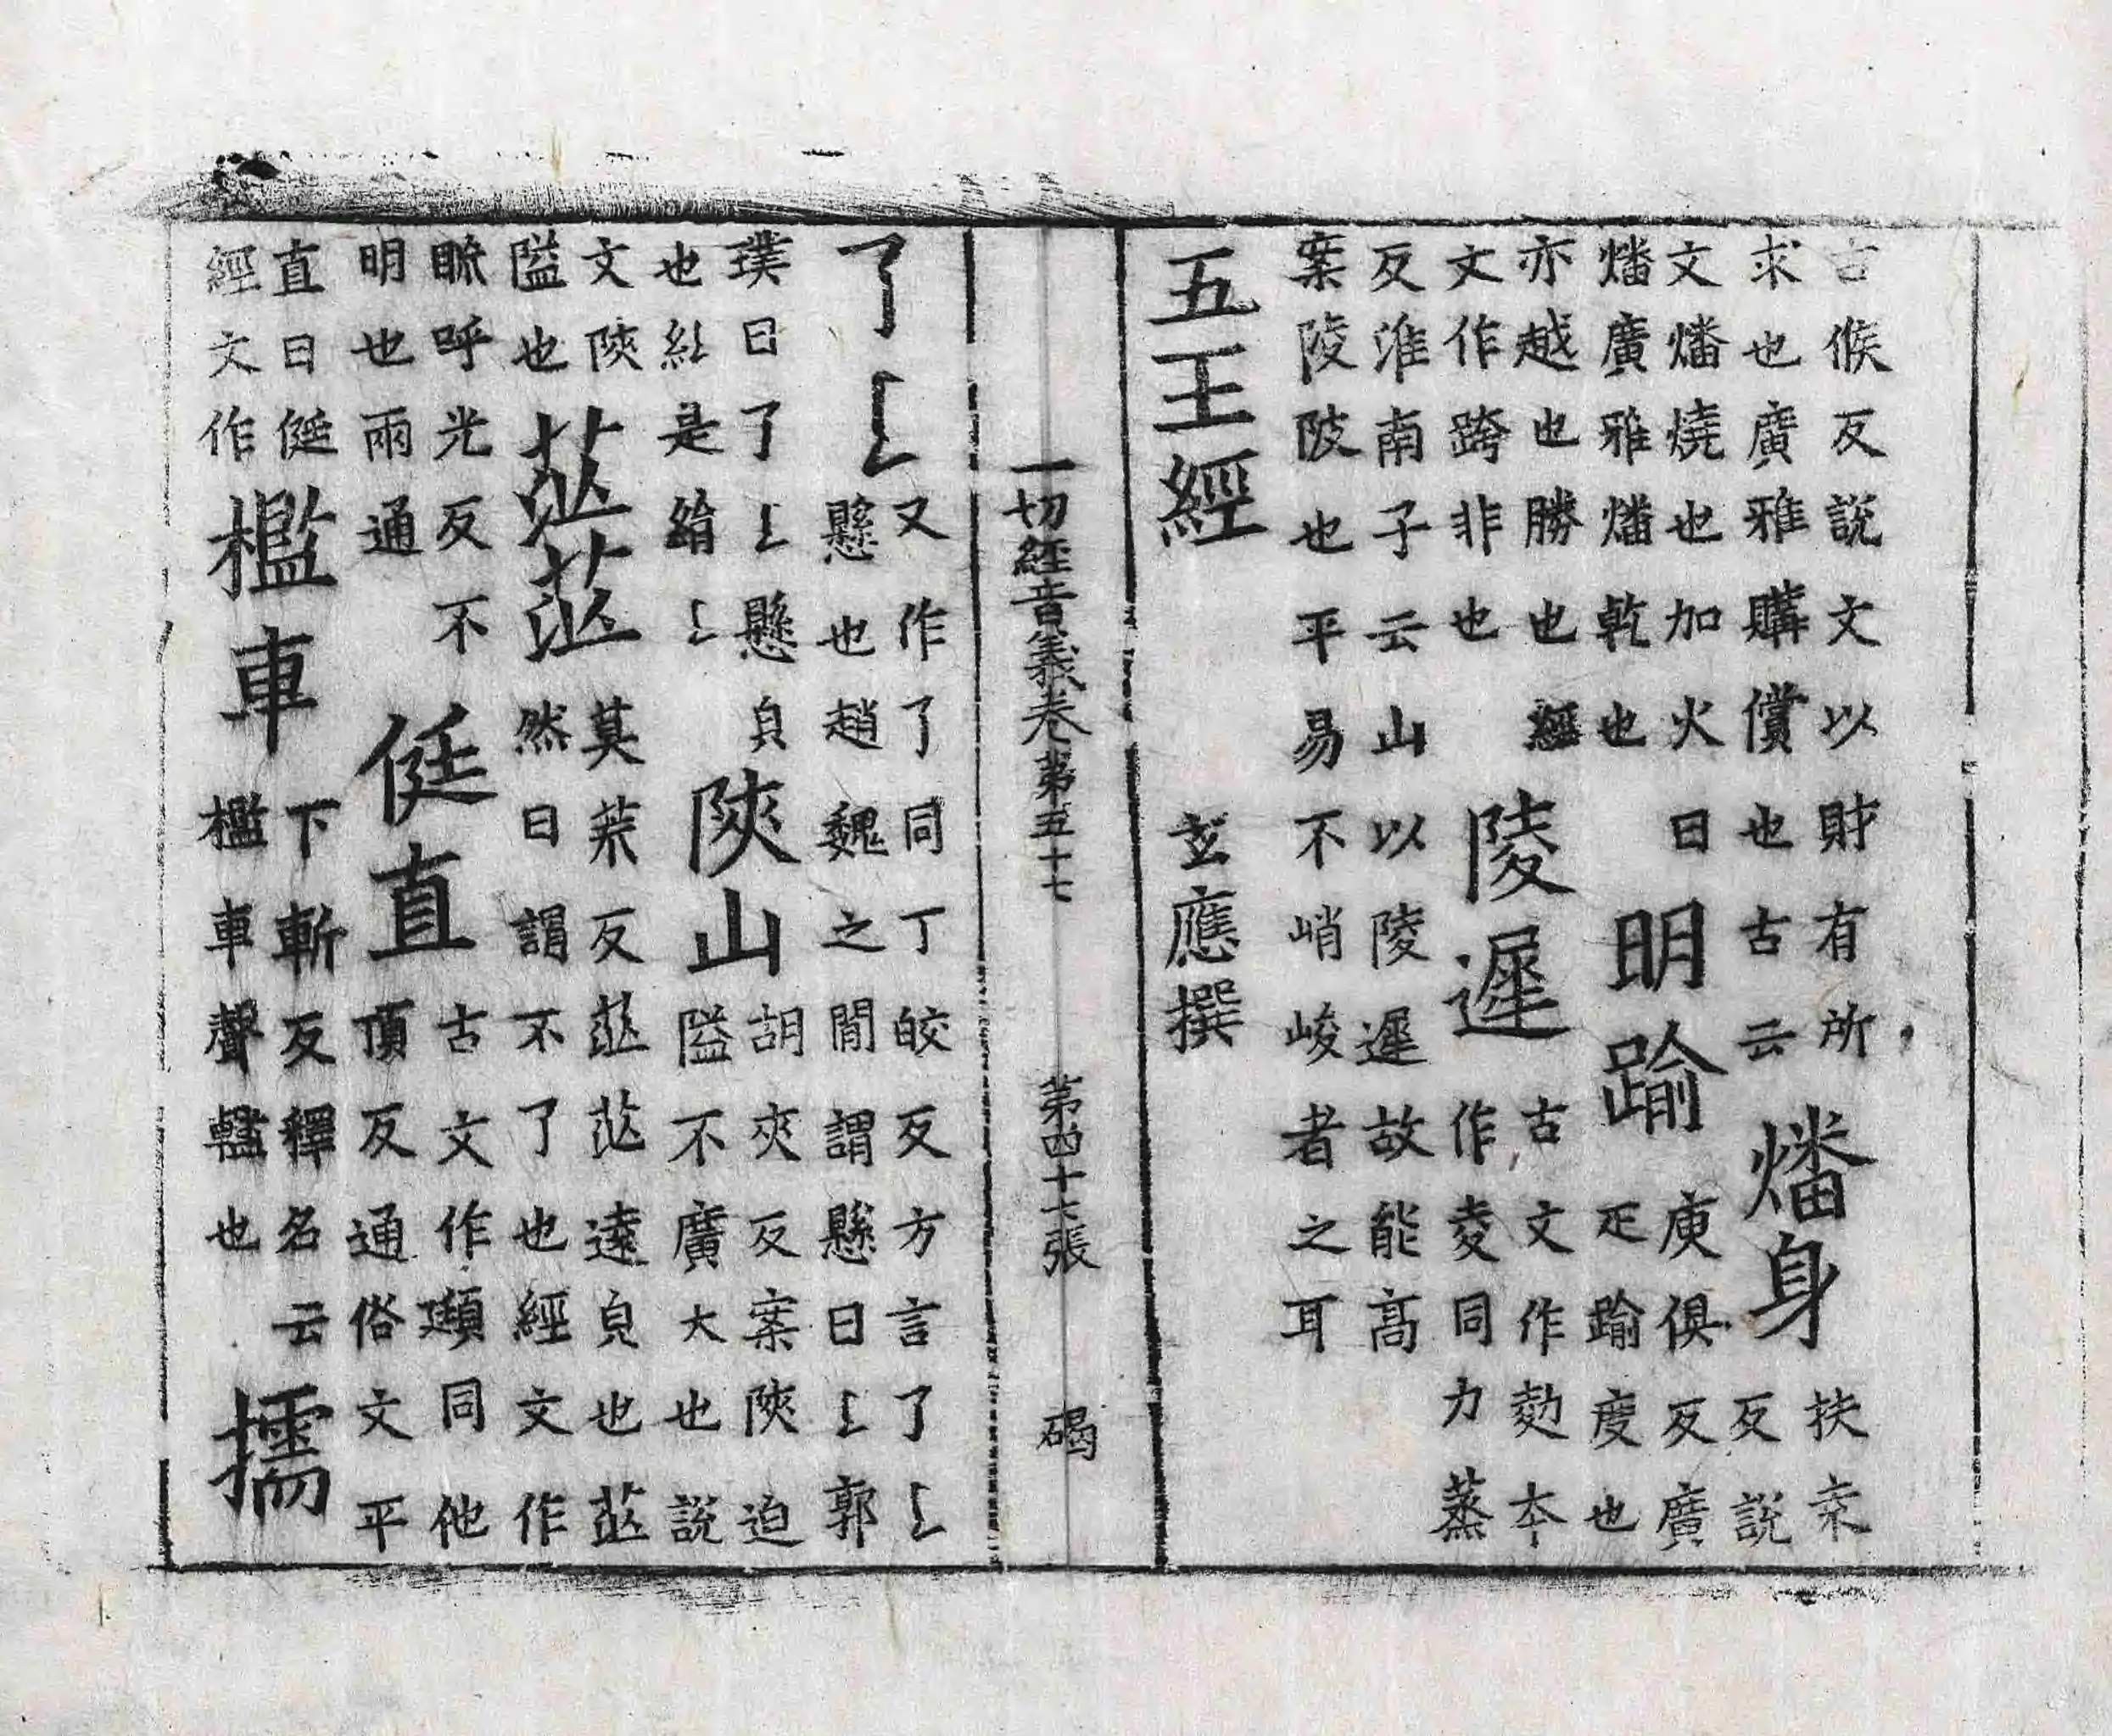 古候反說文以財有所
求也廣雅購償也古云
燔身
扶
反說
文燔燒也加火曰
燔廣雅燔乾也
明踰
庾俱反廣
疋踰度也
亦越也勝也經
文作跨非也
陵遲
古文作勎夲
作夌同力蒸
反淮南子云山以陵遲故能高
案陵陂也平易不峭峻者之耳
五王經 玄應撰
一切經音義卷第五十七 第四十七張 碣
了𠄌
又作了同丁皎反方言了𠄌
懸也趙魏之間謂懸曰𠄌郭
璞曰了𠄌懸皃
也是𠄌
陜山
胡夾反案陜迫
隘不廣大也說
文陜
隘也
茫茫
莫荒反茫茫遠皃也茫
然曰謂不了也經文作
䀮呼光反不
明也兩通
侹直
古文作頲同他
頂反通俗文平
直曰侹
經文作
檻車
下斬反釋名云
檻車聲轞也
擩